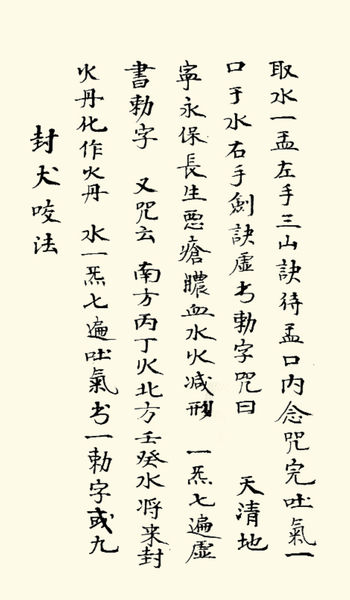 取水一盂左手三山訣待盂口内念咒完吐氣一
口于水右手劍訣虛书勅字咒曰　天清地
寧永保長生惡瘡膿血水火减形　一炁七遍虛
書勅字　又咒云　南方丙丁火北方壬癸水将来封
火丹化作火丹　水一炁七遍吐氣书一勅字或九
封犬咬法